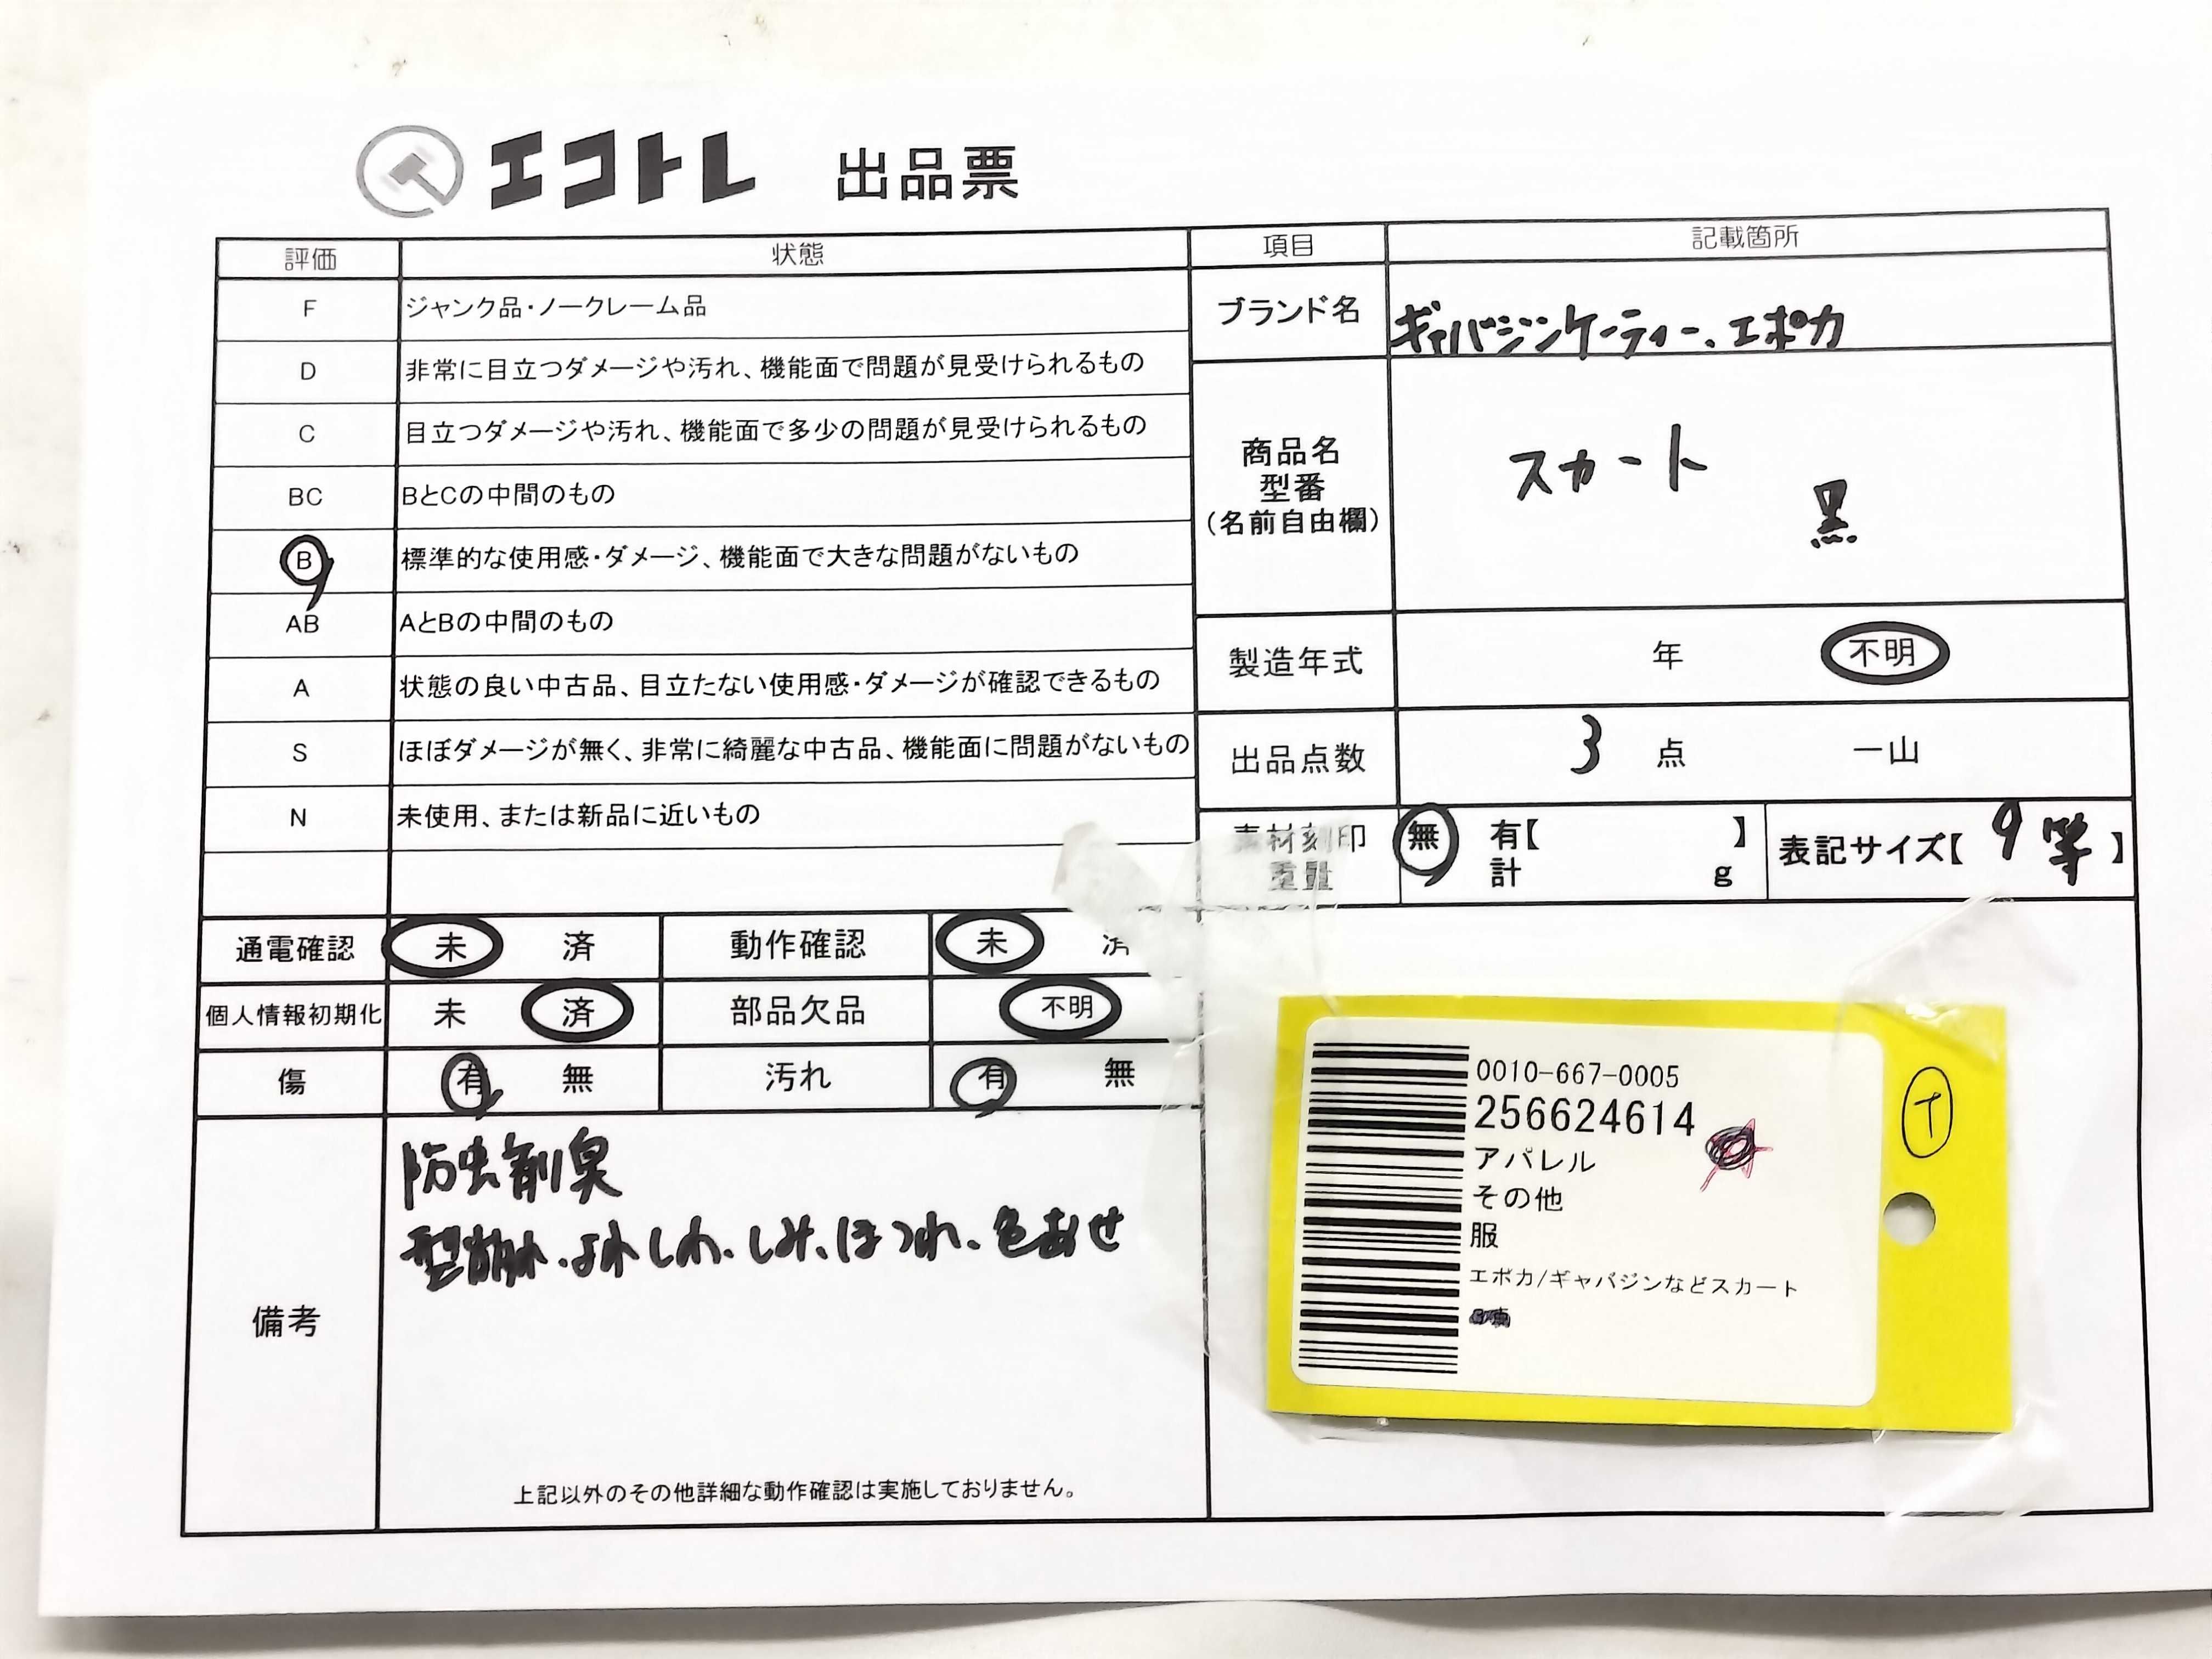 エコトレ 出品票
評価 状態 項目 記載箇所
F ジャンク品・ノークレーム品
D 非常に目立つダメージや汚れ、機能面で問題が見受けられるもの
C 目立つダメージや汚れ、機能面で多少の問題が見受けられるもの
BC BとCの中間のもの
B 標準的な使用感・ダメージ、機能面で大きな問題がないもの
AB AとBの中間のもの
A 状態の良い中古品、目立たない使用感・ダメージが確認できるもの
S ほぼダメージが無く、非常に綺麗な中古品、機能面に問題がないもの
N 未使用、または新品に近いもの
ブランド名 ギャバジンケーティー、エポカ
商品名
型番
(名前自由欄)
スカート
黒
製造年式 年 不明
出品点数 3 点 一山
素材刻印 無 有【 】
重量 計 g
表記サイズ【 9 等 】
通電確認 未 済 動作確認 未 済
個人情報初期化 未 済 部品欠品 不明
傷 有 無 汚れ 有 無
備考
防虫剤臭
型崩れ、よれしわ、しみ、ほつれ、色あせ
上記以外のその他詳細な動作確認は実施しておりません。
0010-667-0005
256624614
アパレル
その他
服
エポカ/ギャバジンなどスカート
T